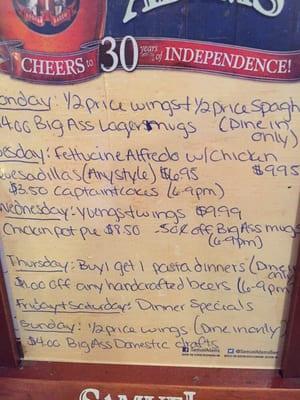 CHEERS to 30 years of INDEPENDENCE!
onday: 1/2 price wings + 1/2 price Spagh
4.00 Big Ass Lager mugs (Dine in only)
uesday: Fettucine Alfredo w/ Chicken $9.95
uesadillas (Any style) $6.95
$3.50 Captain Cokes (6-9pm)
Wednesday: Yuengs + wings $9.99
Chicken pot pie $8.50 .50¢ off Big Ass mugs (6-9pm)
Thursday: Buy 1 get 1 pasta dinners (Din only)
$1.00 Off any handcrafted beers (6-9pm)
Friday + Saturday: Dinner Specials
Sunday: 1/2 price wings (Dine in only)
$4.00 Big Ass Domestic drafts
SamuelAdams @SamuelAdams
SAMUEL